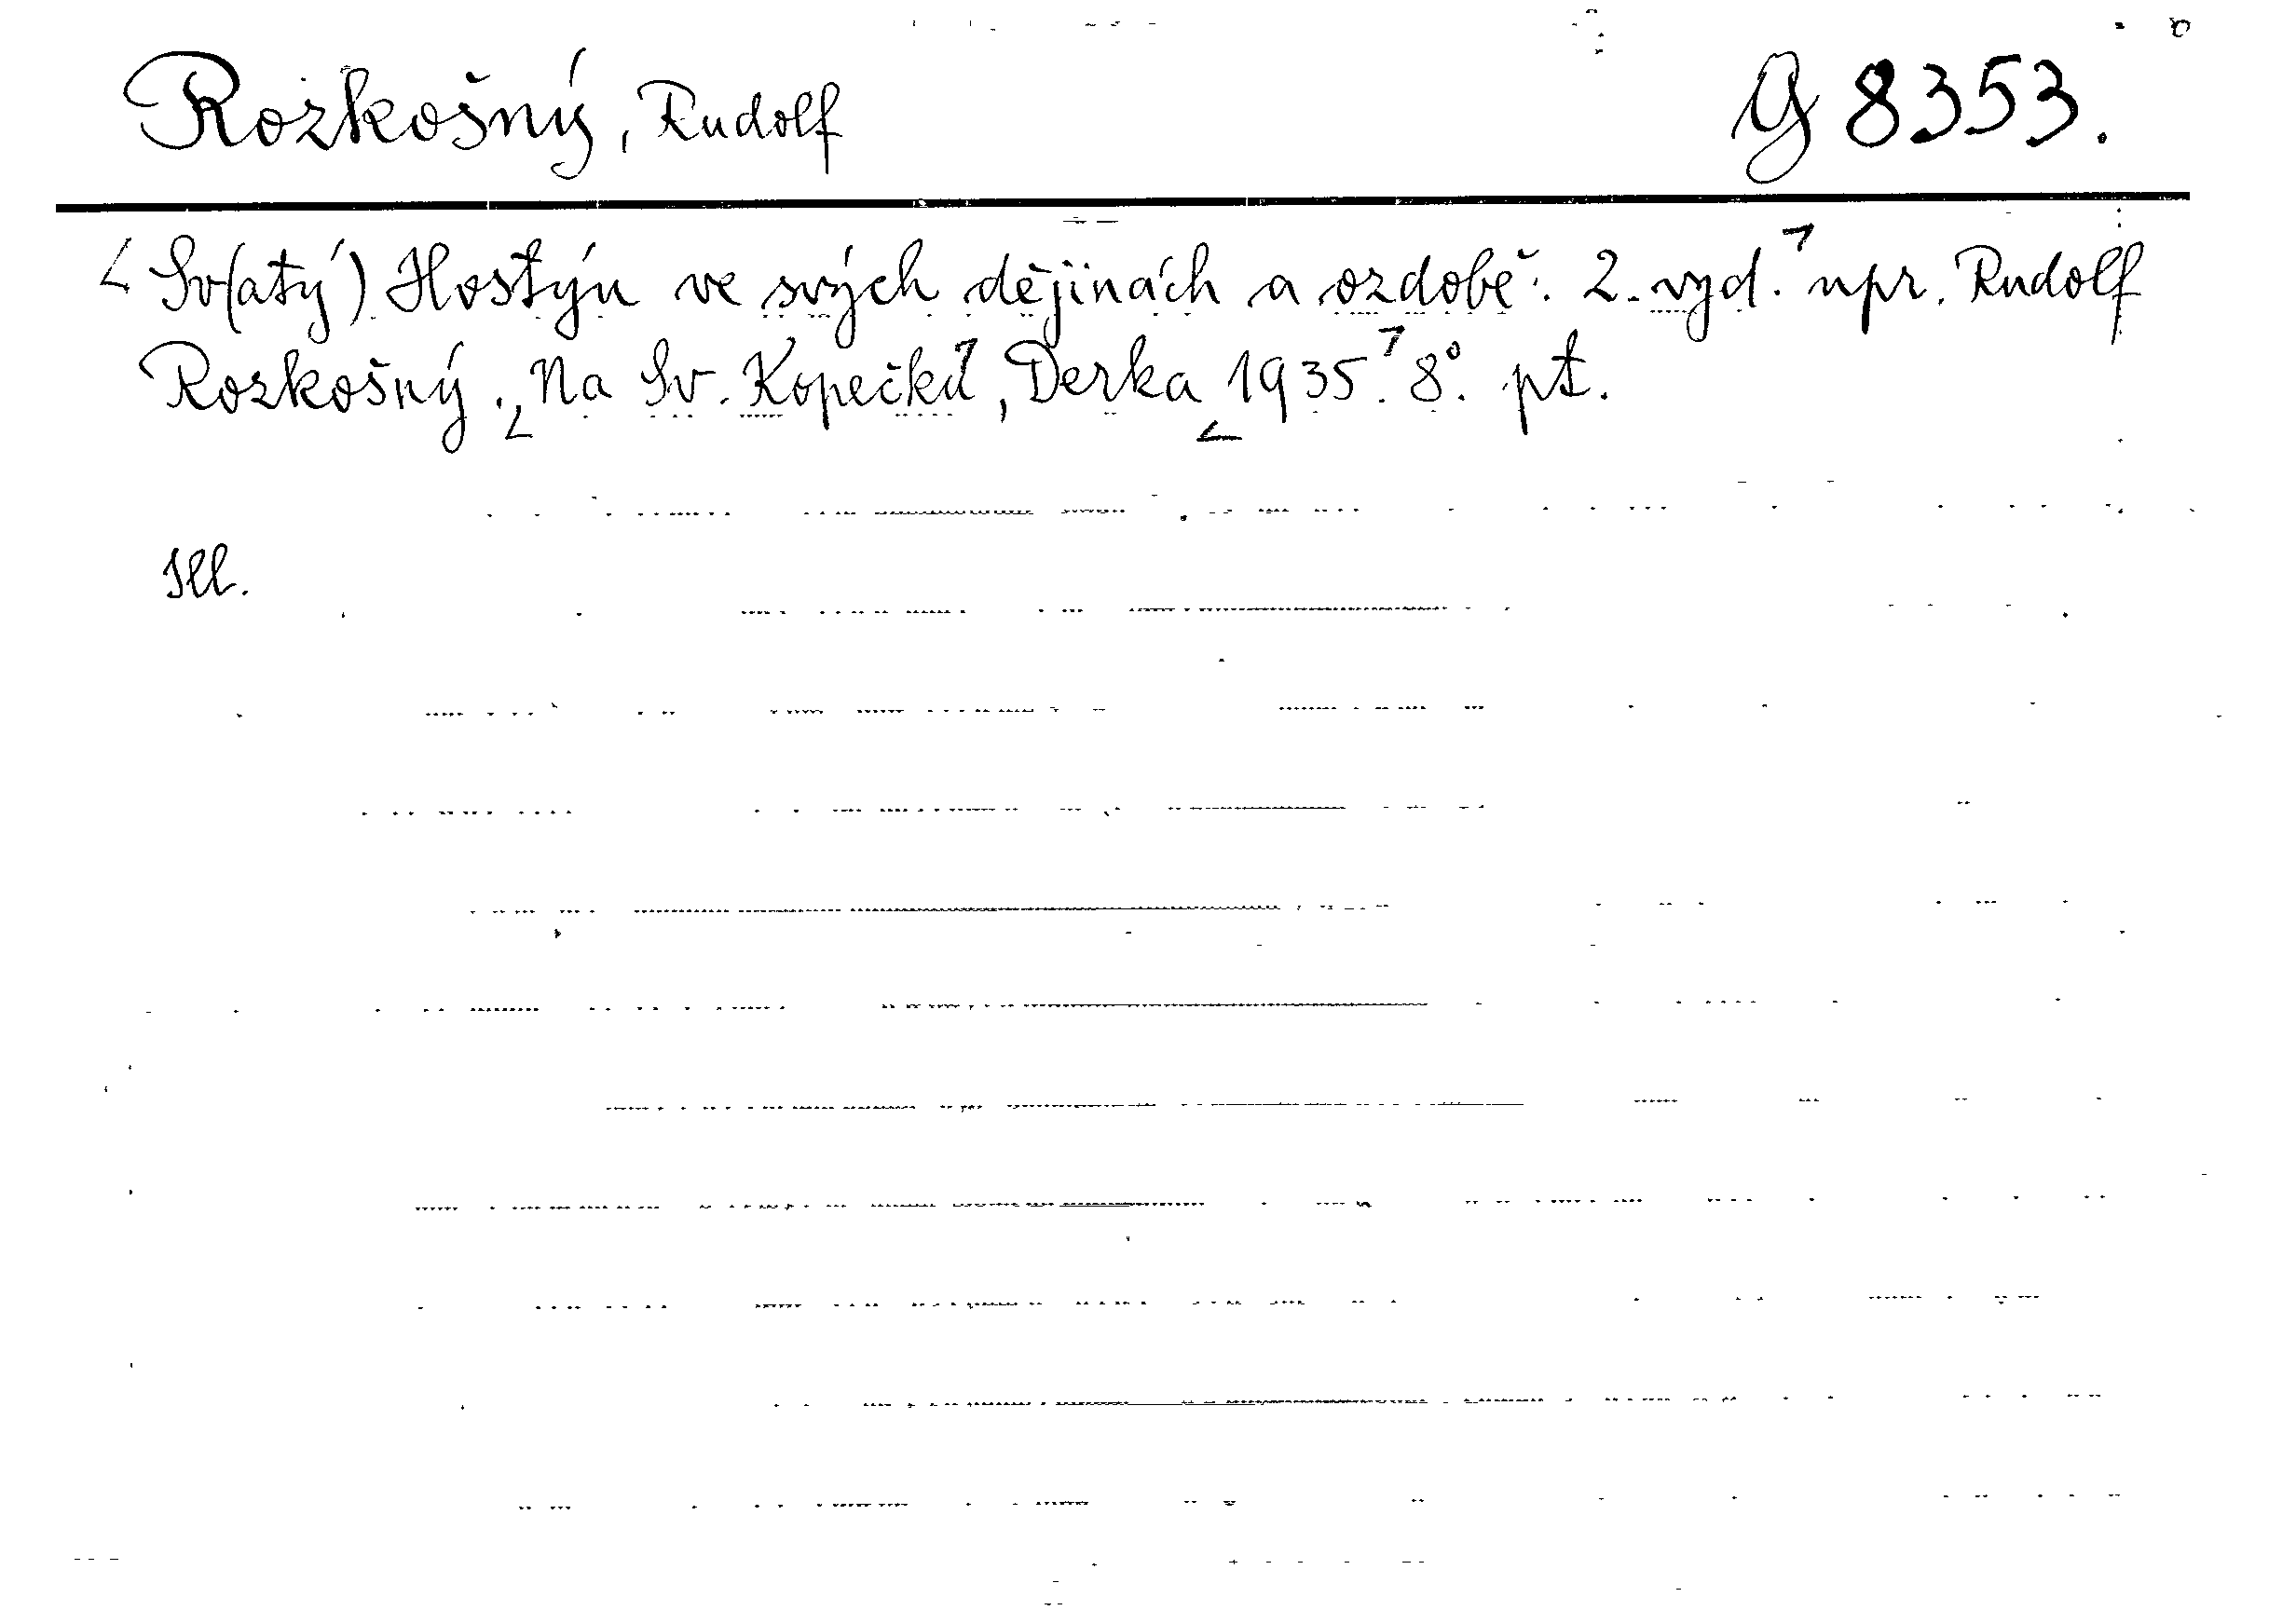 Rozkošný, Rudolf
G 8353.
Sv(atý) Hostýn ve svých dějinách a ozdobě. 2. vyd. upr. Rudolf
Rozkošný. Na Sv. Kopečku, Derka 1935. 8°. pt.
Ill.